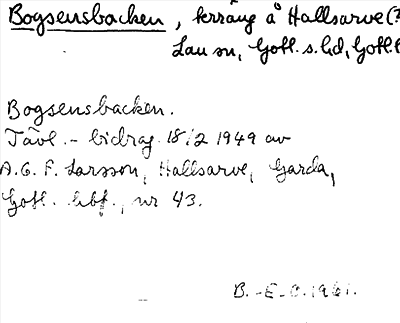 Bogsensbacken, terräng å Hallsarve (?
Lau sn, Gotl. s. hd, Gotl. l
Bogsensbacken.
Tävl.-bidrag 18/2 1949 av
A.G.F. Larsson, Hallsarve, Garda,
Gotl. hbf., nr 43.
B.-E.O. 1961.